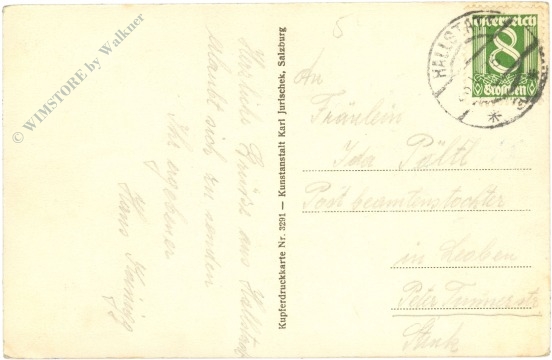 © WIMSTORE by Walkner
Herzliche Grüsse aus Hallstatt
erlaubt sich zu senden
Ihr ergebener
Hans
Kupferdruckkarte Nr. 3291 — Kunstanstalt Karl Jurischek, Salzburg
5
Österreich
8
Groschen
HALLST
An
Fräulein
Ida Pöltl
Postbeamtenstochter
in Leoben
Peter Tunnerstr